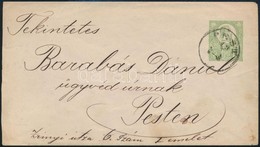 Tekintetes
Barabás Dániel
ügyvéd urnak
Pesten
Zrinyi utza 6. szám I emelet
PEST